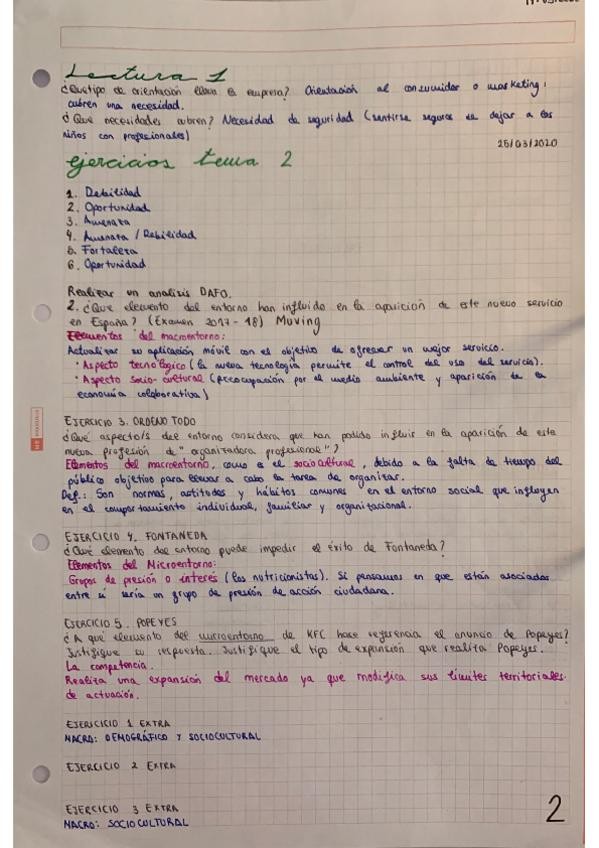 Lectura 1
¿Que tipo de orientación lleva la empresa? Orientación al consumidor o marketing:
cubren una necesidad.
¿Que necesidades cubren? Necesidad de seguridad (sentirse seguros de dejar a los
niños con profesionales)
25/03/2020
ejercicios tema 2
1. Debilidad
2. Oportunidad
3. Amenaza
4. Amenaza / Debilidad
5. Fortaleza
6. Oportunidad
Realizar un analisis DAFO.
2. ¿Que elemento del entorno han influido en la aparición de este nuevo servicio
en España? (Examen 2017-18) Muving
Elementos del macroentorno:
Actualizar su aplicación móvil con el objetivo de ofrecer un mejor servicio.
· Aspecto tecnológico (la nueva tecnología permite el control del uso del servicio).
· Aspecto socio-cultural (preocupación por el medio ambiente y aparición de la
economía colaborativa)
EJERCICIO 3. ORDENO TODO
¿Qué aspecto/s del entorno considera que han podido influir en la aparición de esta
nueva profesión de "organizadora profesional"?
Elementos del macroentorno, como es el sociocultural, debido a la falta de tiempo del
público objetivo para llevar a cabo la tarea de organizar.
Def.: Son normas, actitudes y hábitos comunes en el entorno social que influyen
en el comportamiento individual, familiar y organizacional.
EJERCICIO 4. FONTANEDA
¿Qué elemento del entorno puede impedir el éxito de Fontaneda?
Elementos del Microentorno:
Grupos de presión o interés (los nutricionistas). Si pensamos en que están asociados
entre sí sería un grupo de presión de acción ciudadana.
EJERCICIO 5. POPEYES
¿A qué elemento del microentorno de KFC hace referencia el anuncio de Popeyes?
Justifique su respuesta. Justifique el tipo de expansión que realiza Popeyes.
La competencia.
Realiza una expansión del mercado ya que modifica sus límites territoriales
de actuación.
EJERCICIO 1 EXTRA
MACRO: DEMOGRÁFICO Y SOCIOCULTURAL
EJERCICIO 2 EXTRA
EJERCICIO 3 EXTRA
MACRO: SOCIOCULTURAL
2